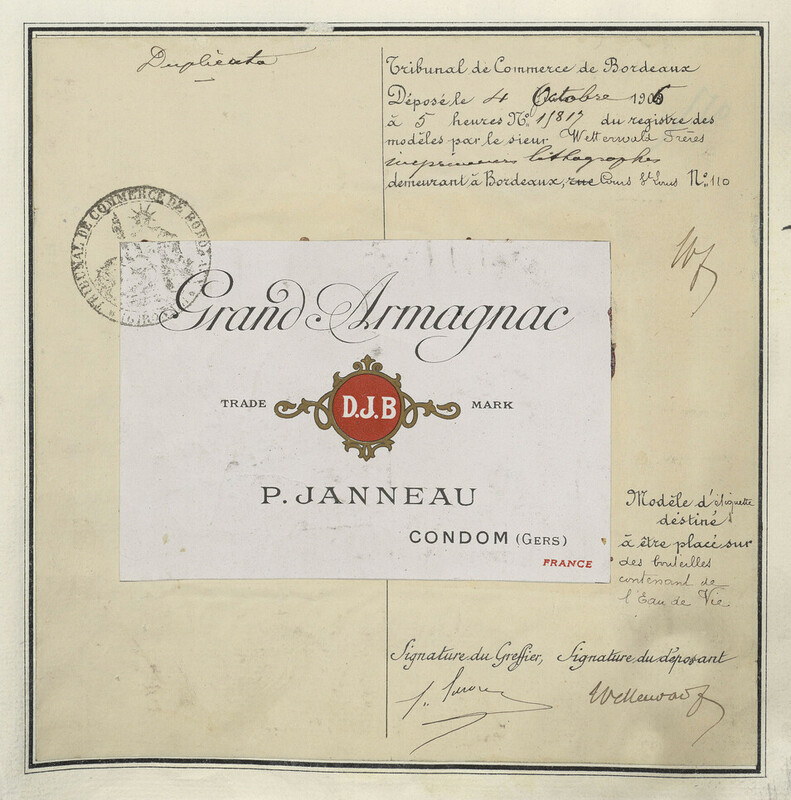 Duplicata
Tribunal de Commerce de Bordeaux
Déposé le 4 Octobre 1906
à 5 heures No. 15817 du registre des
modèles par le sieur Wetterwald Frères
imprimeurs lithographes
demeurant à Bordeaux, rue Cours St Louis No. 110
TRIBUNAL DE COMMERCE DE BORDEAUX
Grand Armagnac
TRADE D.J.B MARK
P. JANNEAU
CONDOM (GERS)
FRANCE
Modèle d'étiquette
destiné
à être placé sur
des bouteilles
contenant de
l'Eau de Vie
Signature du Greffier, Signature du déposant
Wetterwald